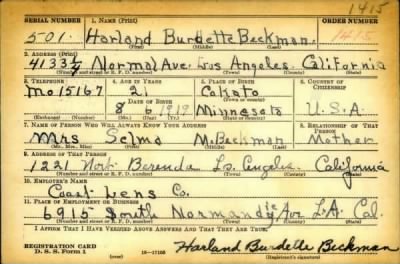 1415
SERIAL NUMBER 1. NAME (Print) ORDER NUMBER
501 Harland Burdette Beckman 1415
(First) (Middle) (Last)
2. ADDRESS (Print)
4133½ Normal Ave. Los Angeles. California
(Number and street or R. F. D. number) (Town) (County) (State)
3. TELEPHONE 4. AGE IN YEARS 5. PLACE OF BIRTH 6. COUNTRY OF CITIZENSHIP
Mo 15167 21 Cokato
DATE OF BIRTH (Town or county)
8 6 1919 Minnesota U.S.A.
(Exchange) (Number) (Mo.) (Day) (Yr.) (State or country)
7. NAME OF PERSON WHO WILL ALWAYS KNOW YOUR ADDRESS 8. RELATIONSHIP OF THAT PERSON
Mrs Selma M. Beckman Mother
(Mr., Mrs., Miss) (First) (Middle) (Last)
9. ADDRESS OF THAT PERSON
1221 North Berendo Los Angeles California
(Number and street or R. F. D. number) (Town) (County) (State)
10. EMPLOYER'S NAME
Coast Lens Co.
11. PLACE OF EMPLOYMENT OR BUSINESS
6915 South Normandie Ave L.A. Cal.
(Number and street or R. F. D. number) (Town) (County) (State)
I AFFIRM THAT I HAVE VERIFIED ABOVE ANSWERS AND THAT THEY ARE TRUE.
REGISTRATION CARD
D. S. S. Form 1 (over) 16—17105 Harland Burdette Beckman
(Registrant's signature)